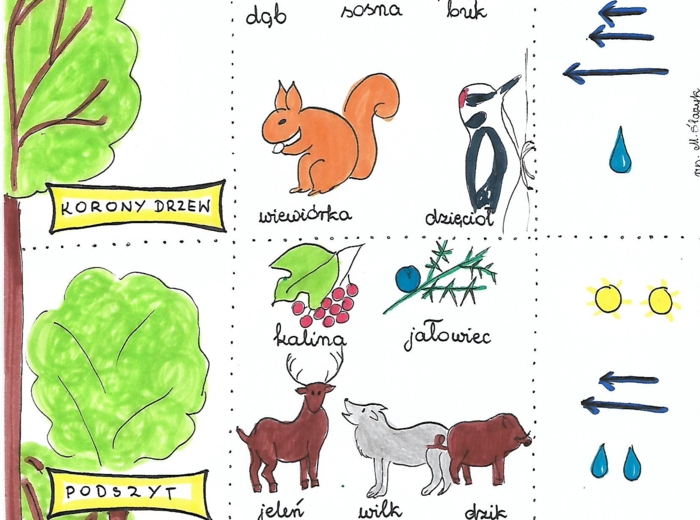 dąb sosna buk
KORONY DRZEW
wiewiórka dzięcioł
kalina jałowiec
PODSZYT
jeleń wilk dzik